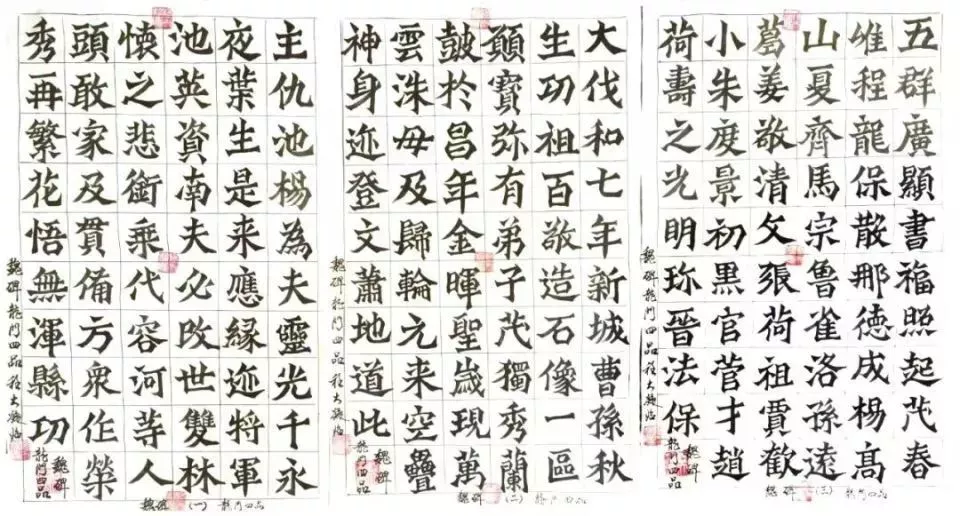 主仇池楊為夫靈光千永
夜葉生是来應緣迹将軍
池英資南夫必改世雙林
懷之悲銜乘代容河等人
頭敢家及貫備方衆作榮
秀再繁花悟無渾縣功
魏碑
龍門四品
魏碑龍門四品程大臨
魏碑(一)龍門四品
大伐和七年新城曹孫秋
生功祖百敬造石像一區
顥寶弥有弟子茂獨秀蘭
皷於昌年金暉聖歲現萬
雲洙毋及歸輪元来空疊
神身迹登文蕭地道此
魏碑
龍門四品
魏碑龍門四品程大臨
魏碑(二)龍門四品
五群廣顯書福照起茂春
维程龍保散那德成楊高
山夏齊馬宗鲁雀洛孫遠
葛姜敬清父張荷祖賈歡
小朱度景初黑官菅才趙
荷壽之光明珎晉法保
魏碑
龍門四品
魏碑龍門四品程大臨
魏碑(三)龍門四品